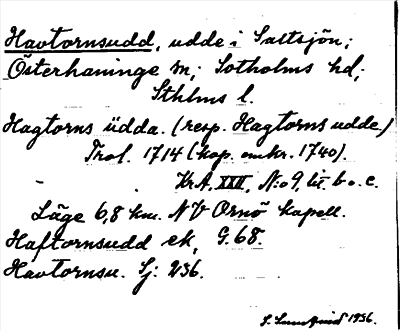 Havtornsudd, udde i Saltsjön;
Österhaninge sn; Sotholms hd;
Sthlms l.
Hagtorns üdda. (resp. Hagtorns udde)
Trol. 1714 (kop. omkr. 1740).
KrA, XXII, N:o 9, lit. b o. c.
Läge 6,8 km. NV Ornö kapell.
Haftornsudd ek, G. 68.
Havtornsu. Sj: 236.
1936.